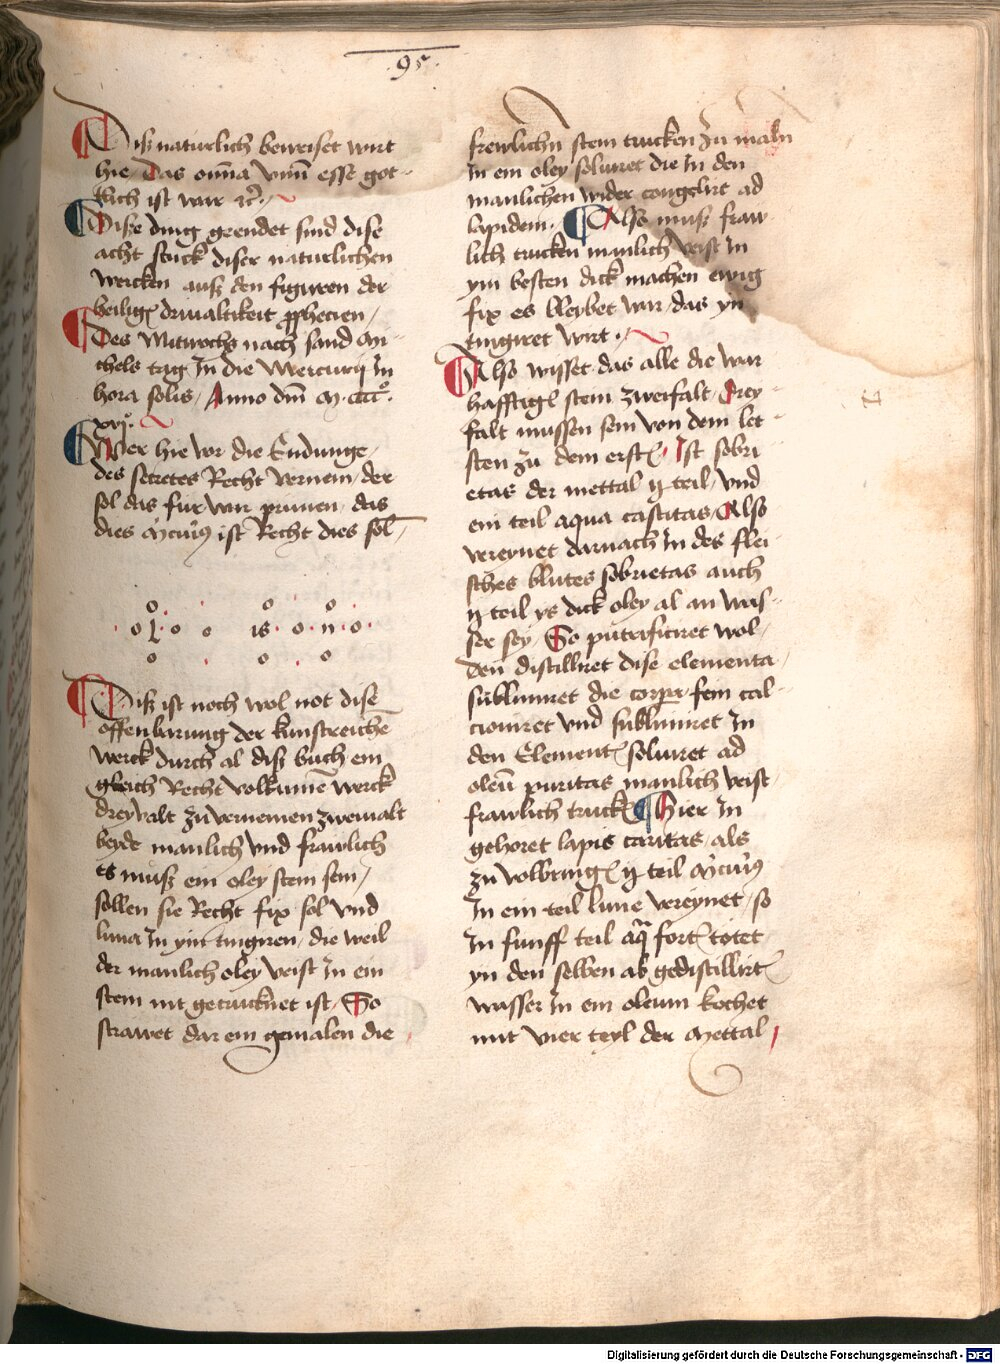 .95.
Disz naturlich beweiset wirt
hie Das omnia vnum esse got-
lich ist war ꝛc.
Disze ding geendet sind dise
acht stuck diser naturlichen
wercken ausz den figuren der
heilig driualtikeit
Des Mitwochs nach sand Mi-
chels tag In die Mercurij In
hora solis, Anno dm̄ M.
xvij.
Wer hie vor die Endunge,
des secretes Recht vernem, der
sol das fur war prüuen, das
dies ist Recht dies sol
Disz ist noch wol not dise
offenbarung der kunstreiche
werck durch al disz buch ein
gleich Recht volkumē werck
dreyualt zu vernemen zweinalt
beyde manlich vnd frawlich
es musz ein oley stein sein,
sollen sie Recht fix sol vnd
luna In ym tingiren, die weil
der manlich oley veist In ein
stein nit getrucknet ist, So
strawet dar ein gemalen die
frewlichn stein trucken zu maln
In ein oley soluiret die In den
manlichen wider congelirt ad
lapidem. Also musz fraw
lich trucken manlich veist In
ym besten dick machen ewig
fix es bleybet war, das yn
tingiret wirt.
Also wisset das alle die war
hafftigē stein zweifalt, Drey
falt mussen sein von dem let-
sten zu dem erstē, Ist sobri
etas der mettal ij teil, vnd
ein teil aqua castitas, Also
vereynet darnach In des flei
sches blutes sobrietas auch
ij teil ys dick oley al an was-
ser sey, So puterficiret wol
den distilliret dise elementa,
sublimiret die corpera sein cal-
cioniret vnd sublimiret In
den Elementē soluiret ad
oleū puritas manlich veist
frawlich truckē Hier In
gehoret lapis caritas, als
zu volbringē ij teil
In ein teil lune vereynet, so
In funff teil aqa fort totet
yn den selben ab gedistillirtē
wasser In ein oleum kochet
mit vier teyl der Mettal
Digitalisierung gefördert durch die Deutsche Forschungsgemeinschaft - DFG